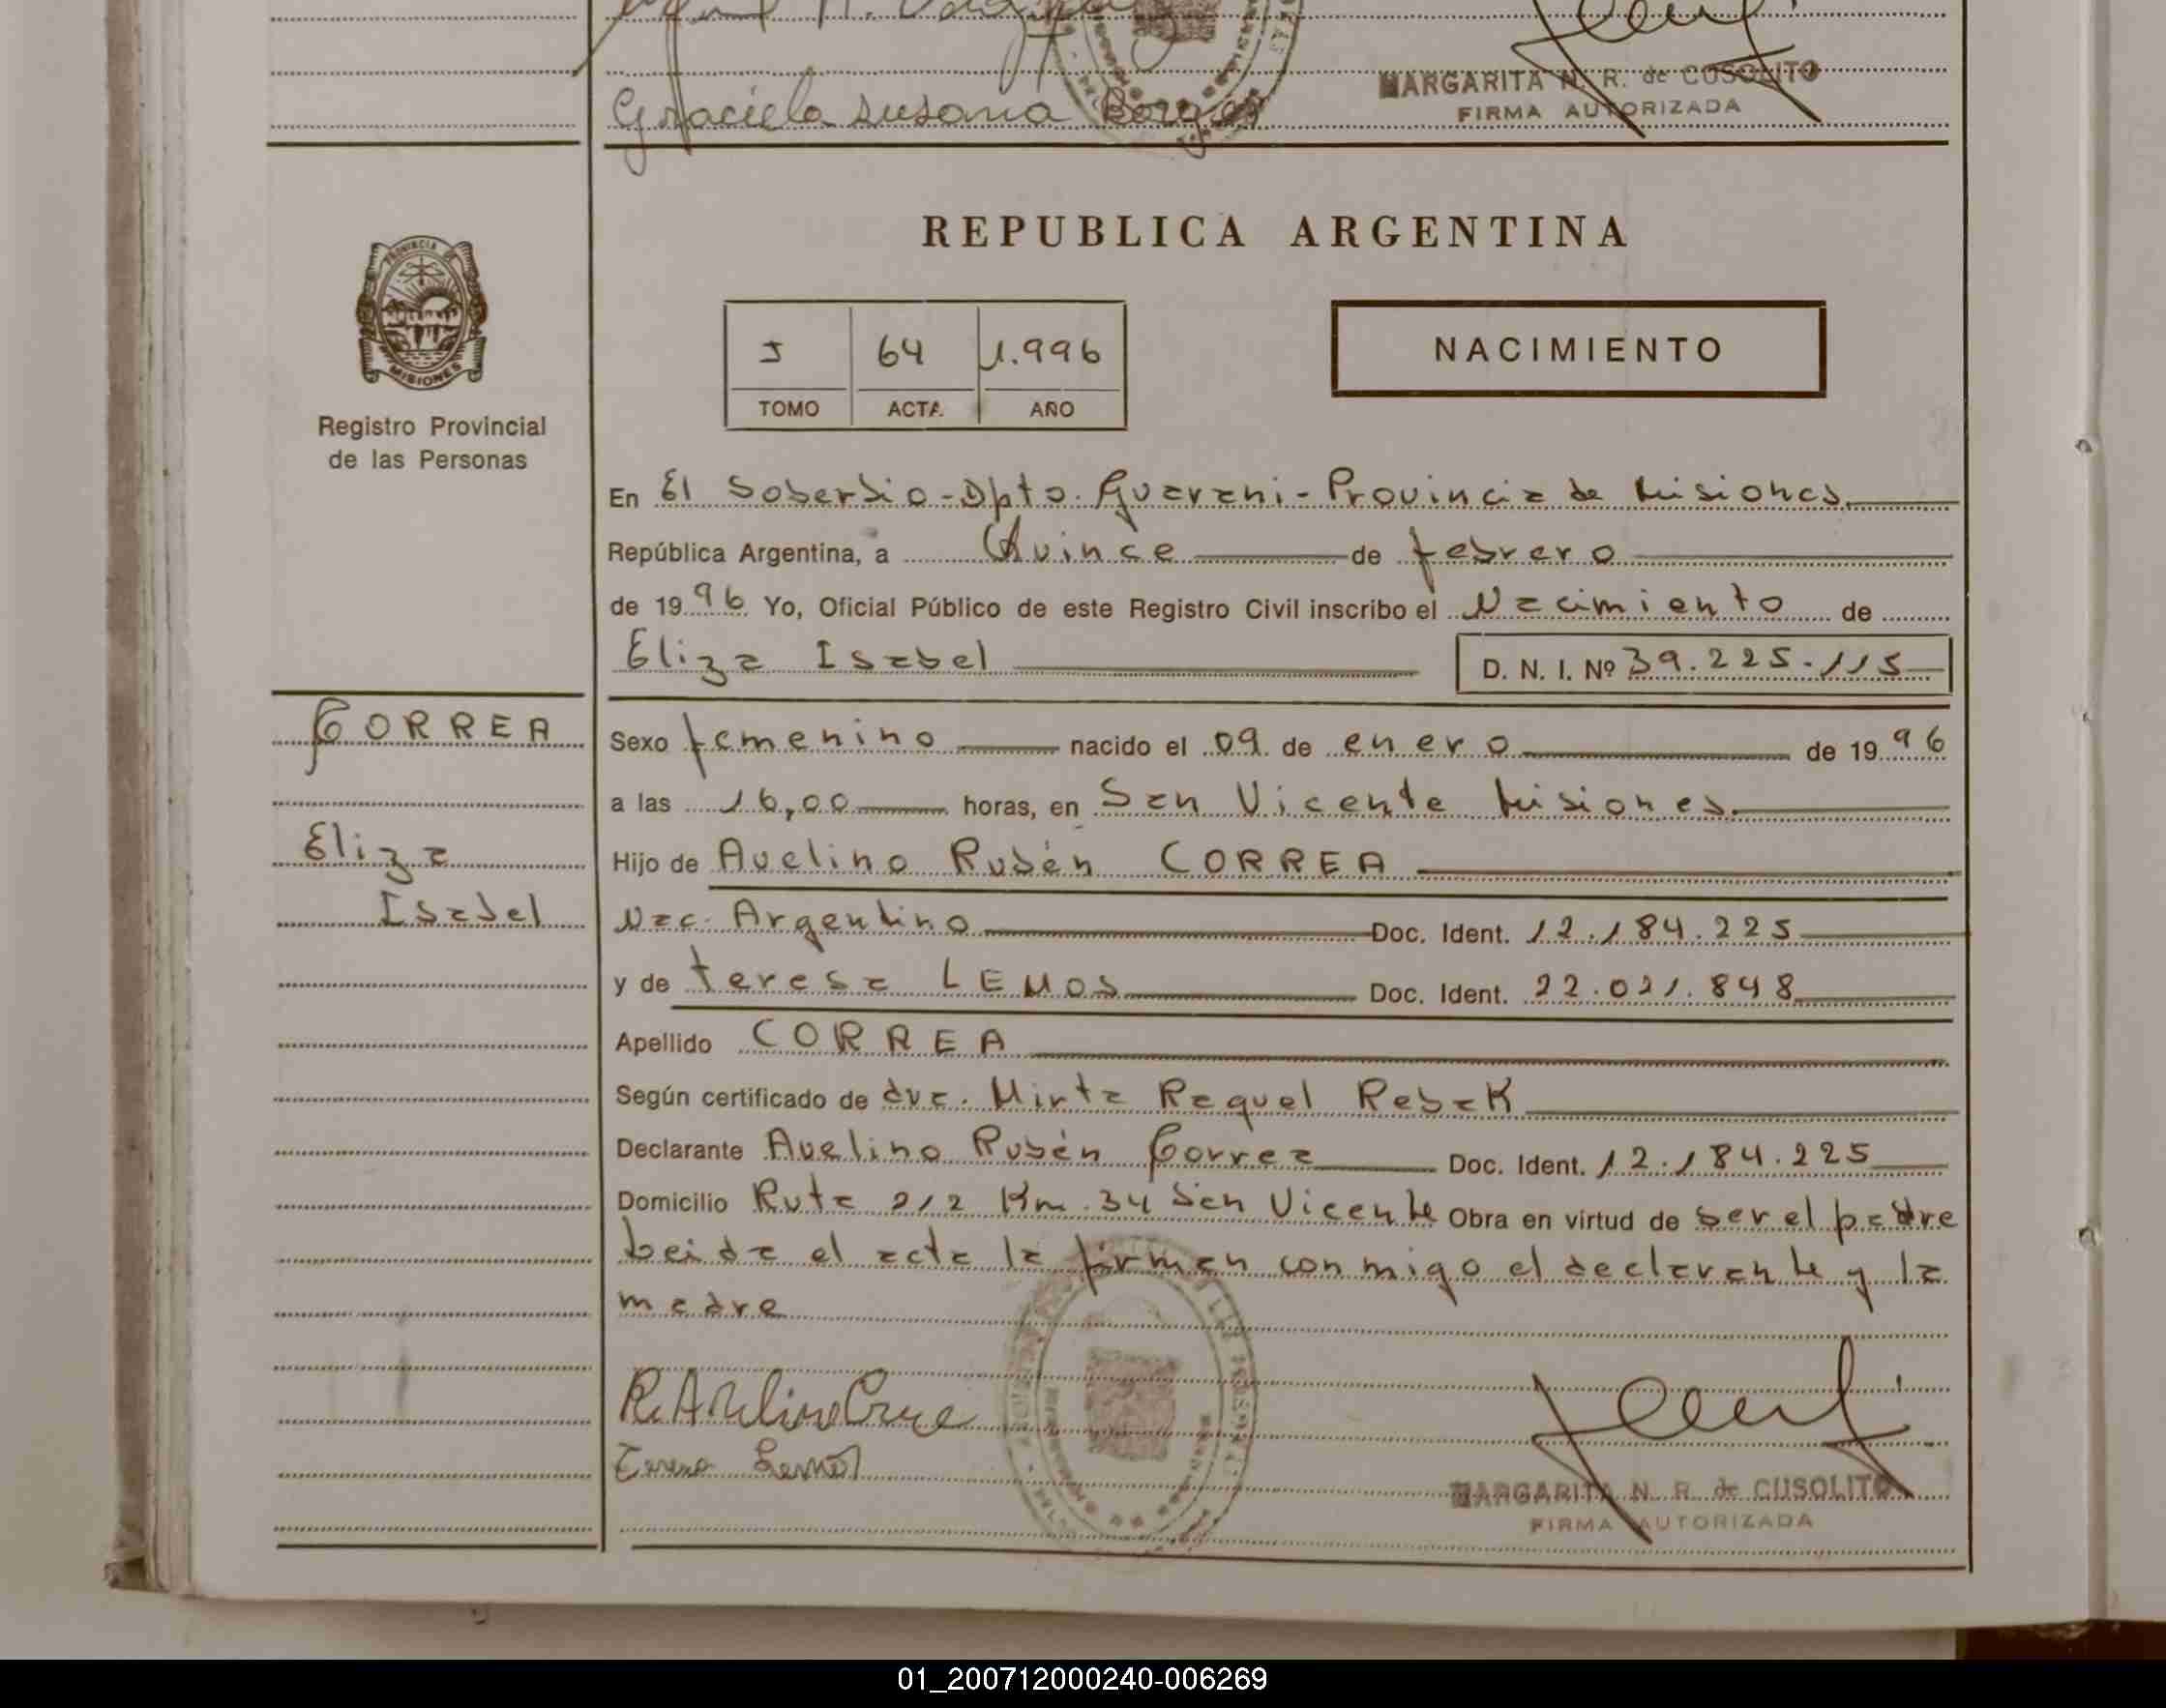 Graciela Susana Borges
MARGARITA N. R. de CUSOLITO
FIRMA AUTORIZADA
REPUBLICA ARGENTINA
PROVINCIA DE
MISIONES
Registro Provincial
de las Personas
I 64 1.996
TOMO ACTA AÑO
NACIMIENTO
En El Soberbio - Dpto. Guarani - Provincia de Misiones.
República Argentina, a Quince de febrero
de 1996 Yo, Oficial Público de este Registro Civil inscribo el Nacimiento de
Eliza Isabel D. N. I. Nº 39.225.115
CORREA
Eliza
Isabel
Sexo femenino nacido el 09 de enero de 1996
a las 16,00 horas, en San Vicente Misiones.
Hijo de Avelino Rubén CORREA
Nac. Argentino Doc. Ident. 12.184.225
y de teresa LEMOS Doc. Ident. 22.021.848
Apellido CORREA
Según certificado de dra. Mirta Raquel Rebak
Declarante Avelino Rubén Correa Doc. Ident. 12.184.225
Domicilio Ruta 212 Km. 34 San Vicente Obra en virtud de ser el padre
Leida el acta la firman conmigo el declarante y la
madre
Teresa Lemos
MARGARITA N. R. de CUSOLITO
FIRMA AUTORIZADA
01_200712000240-006269